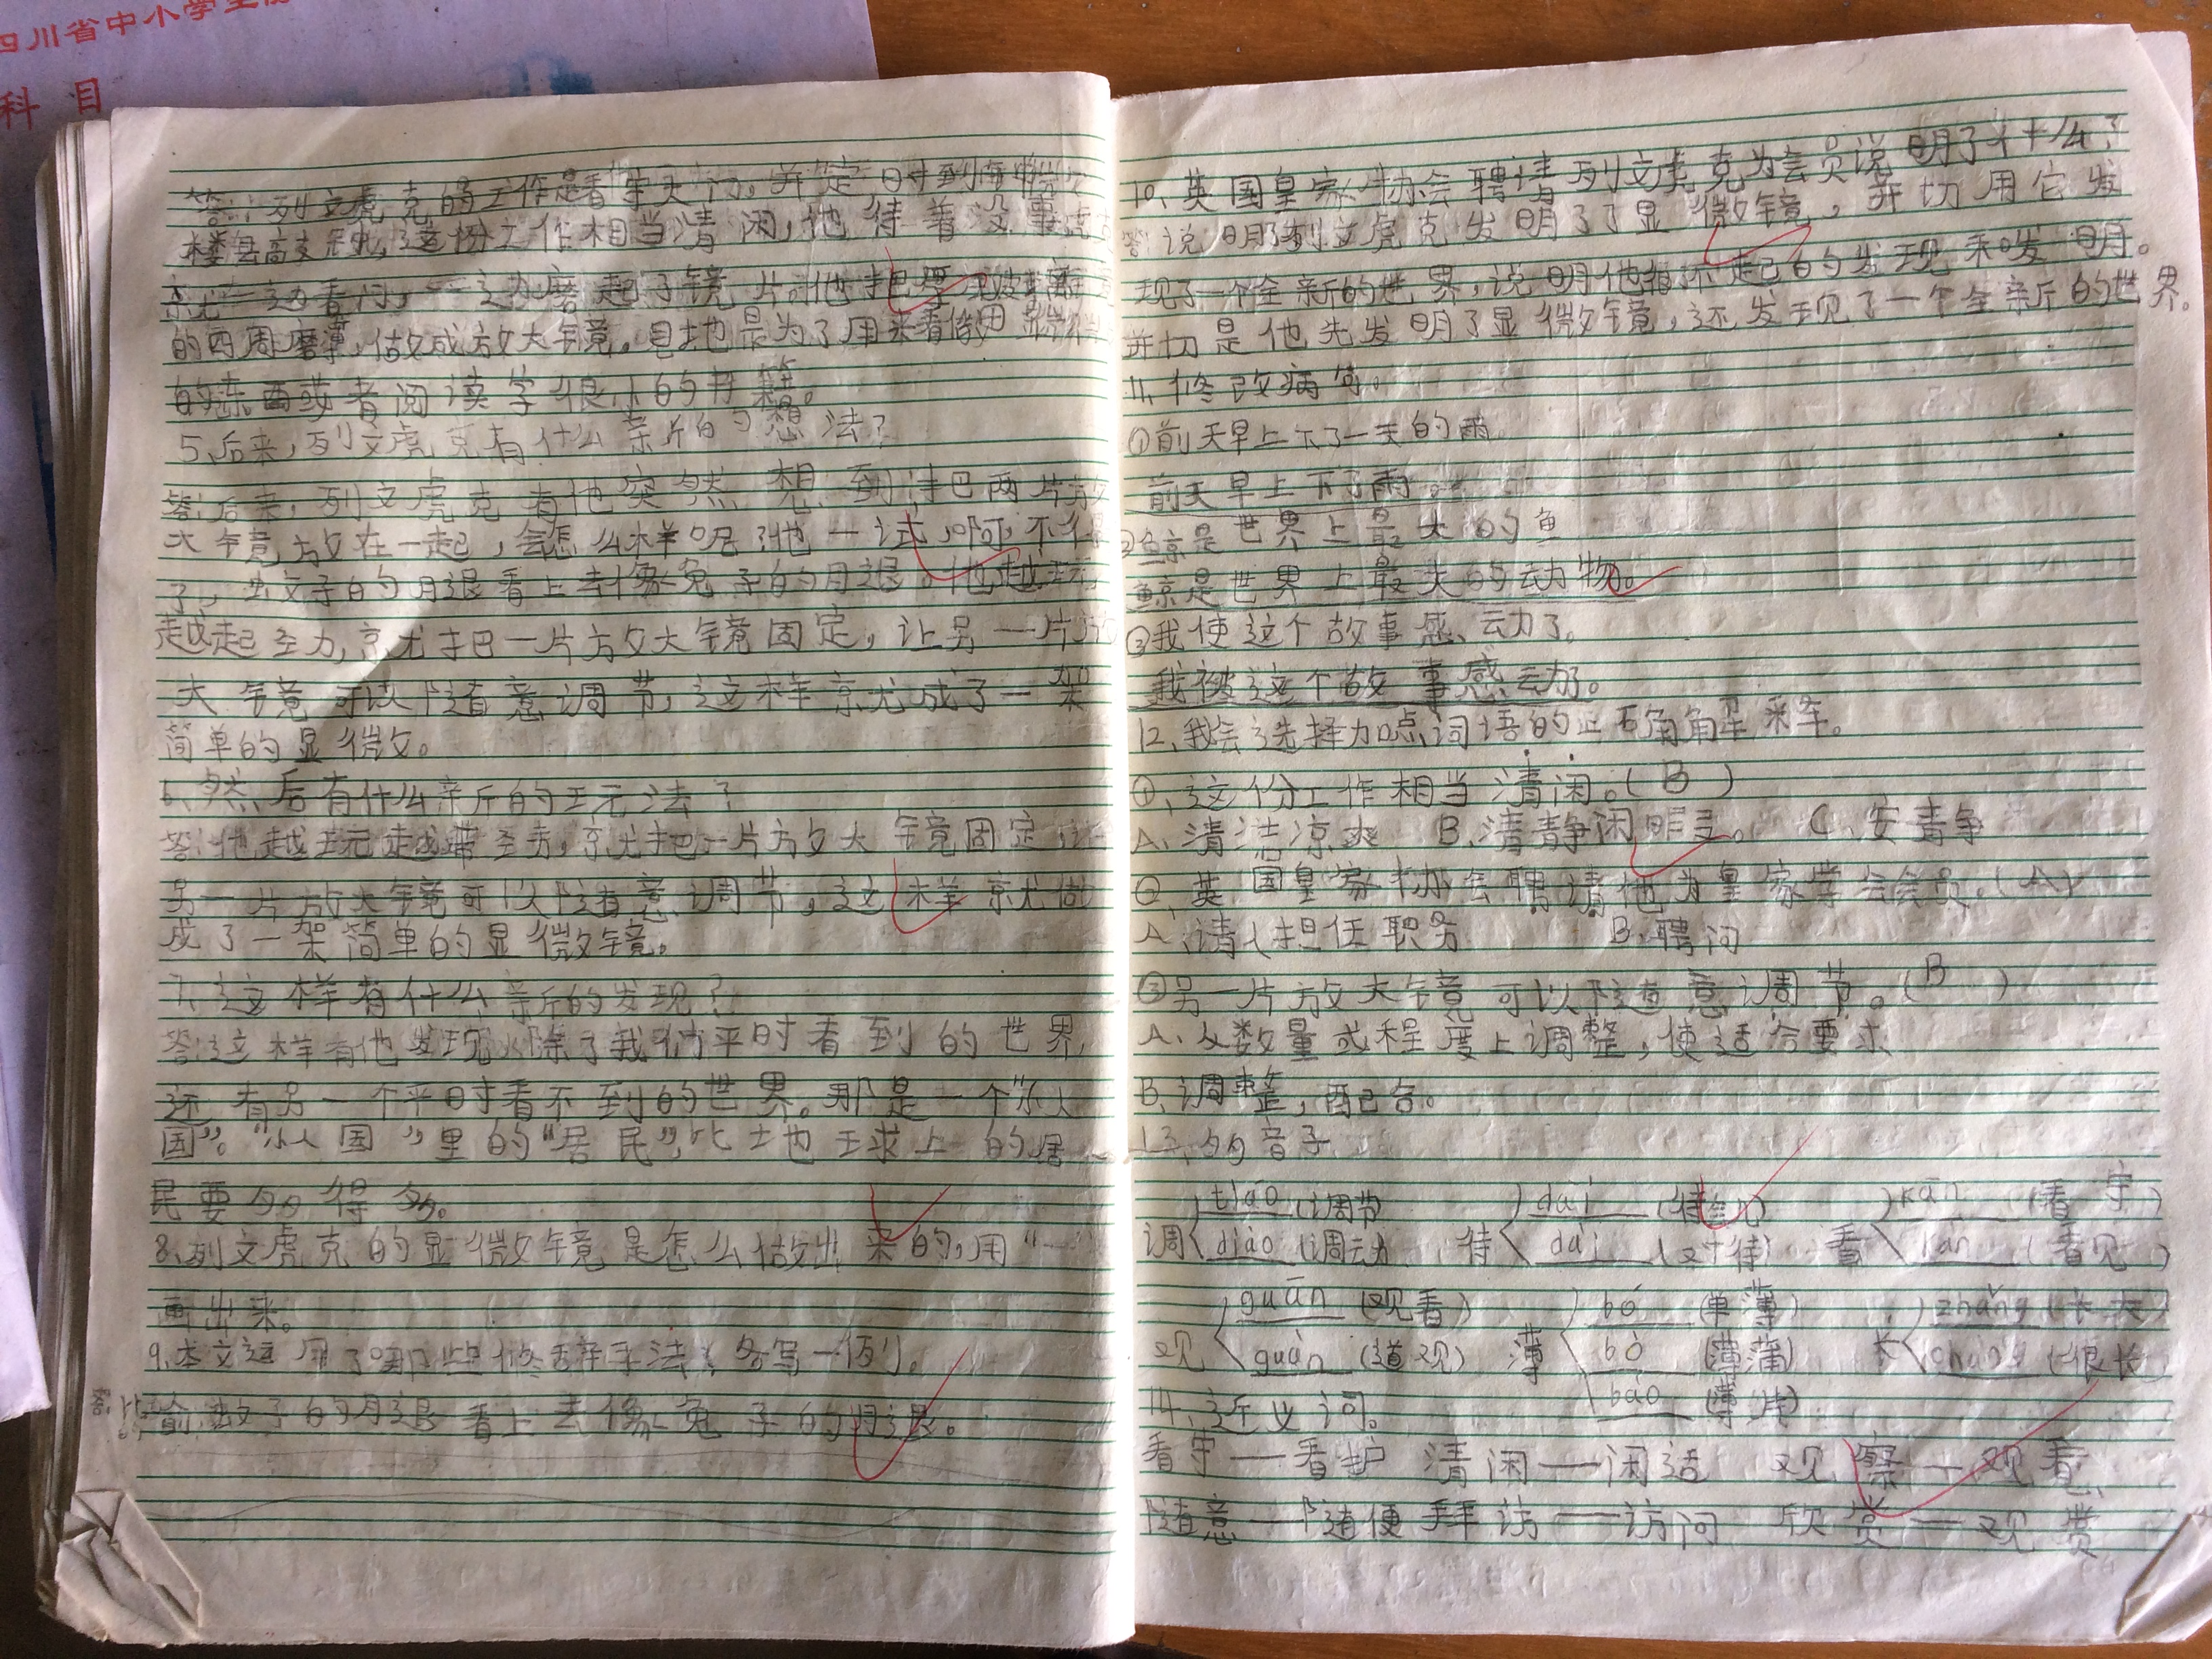 四川省中小学生
科 目
答:列文虎克的工作是看守大门,并定时到
楼去高支钟,这份工作相当清闲,他待着没事
就一边看门,一边磨起了镜片。他把
的四周磨薄,做成放大镜。目地是为了用来看
的东西或者阅读字很小的书籍。
5、后来,列文虎克有什么新的想法?
答:后来,列文虎克有他突然想到:把两片放
大镜放在一起,会怎么样呢?他一试,啊,不得
了,蚊子的腿看上去像兔子的腿。他越玩
越起劲,就把一片放大镜固定,让另一片放
大镜可以随意调节,这样就成了一架
简单的显微。
6、然后有什么新的玩法?
答:他越玩越带劲,就把一片放大镜固定,
另一片放大镜可以随意调节,这样就做
成了一架简单的显微镜。
7、这样有什么新的发现?
答:这样有他发现除了我们平时看到的世界,
还有另一个平时看不到的世界。那是一个“小人
国”。“小人国”里的“居民”比地球上的居
民要多得多。
8、列文虎克的显微镜是怎么做出来的,用“一
画出来。
9、本文运用了哪些修辞手法,各写一例。
答:比喻:蚊子的腿看上去像兔子的腿。
10、英国皇家协会聘请列文虎克为会员说明了什么?
答:说明了列文虎克发明了了显微镜,并切用它发
现了一个全新的世界,说明他有了不起的发现和发明。
并切是他先发明了显微镜,还发现了一个全新的世界。
11、修改病句。
①前天早上下了一天的雨。
前天早上下了雨。
②鲸是世界上最大的鱼
鲸是世界上最大的动物。
③我使这个故事感动了。
我被这个故事感动了。
12、我会选择加点词语的正确解释。
①、这份工作相当清闲。(B)
A、清洁凉爽 B、清静闲暇。 C、安静
②、英国皇家协会聘请他为皇家学会会员。(A)
A、请人担任职务 B、聘问
③另一片放大镜可以随意调节。(B)
A、从数量或程度上调整,使适合要求
B、调整,配合。
13、多音字
tiáo (调节) dāi (待会儿) kān (看守)
调 diào (调动 待 dài (对待) 看 kàn (看见)
guān (观看) bó (单薄) zhǎng (长大)
观 guàn (道观) 薄 bò (薄荷) 长 cháng (很长
báo (薄片)
14、近义词。
看守——看护 清闲——闲适 观察——观看
随意——随便 拜访——访问 欣赏——观赏